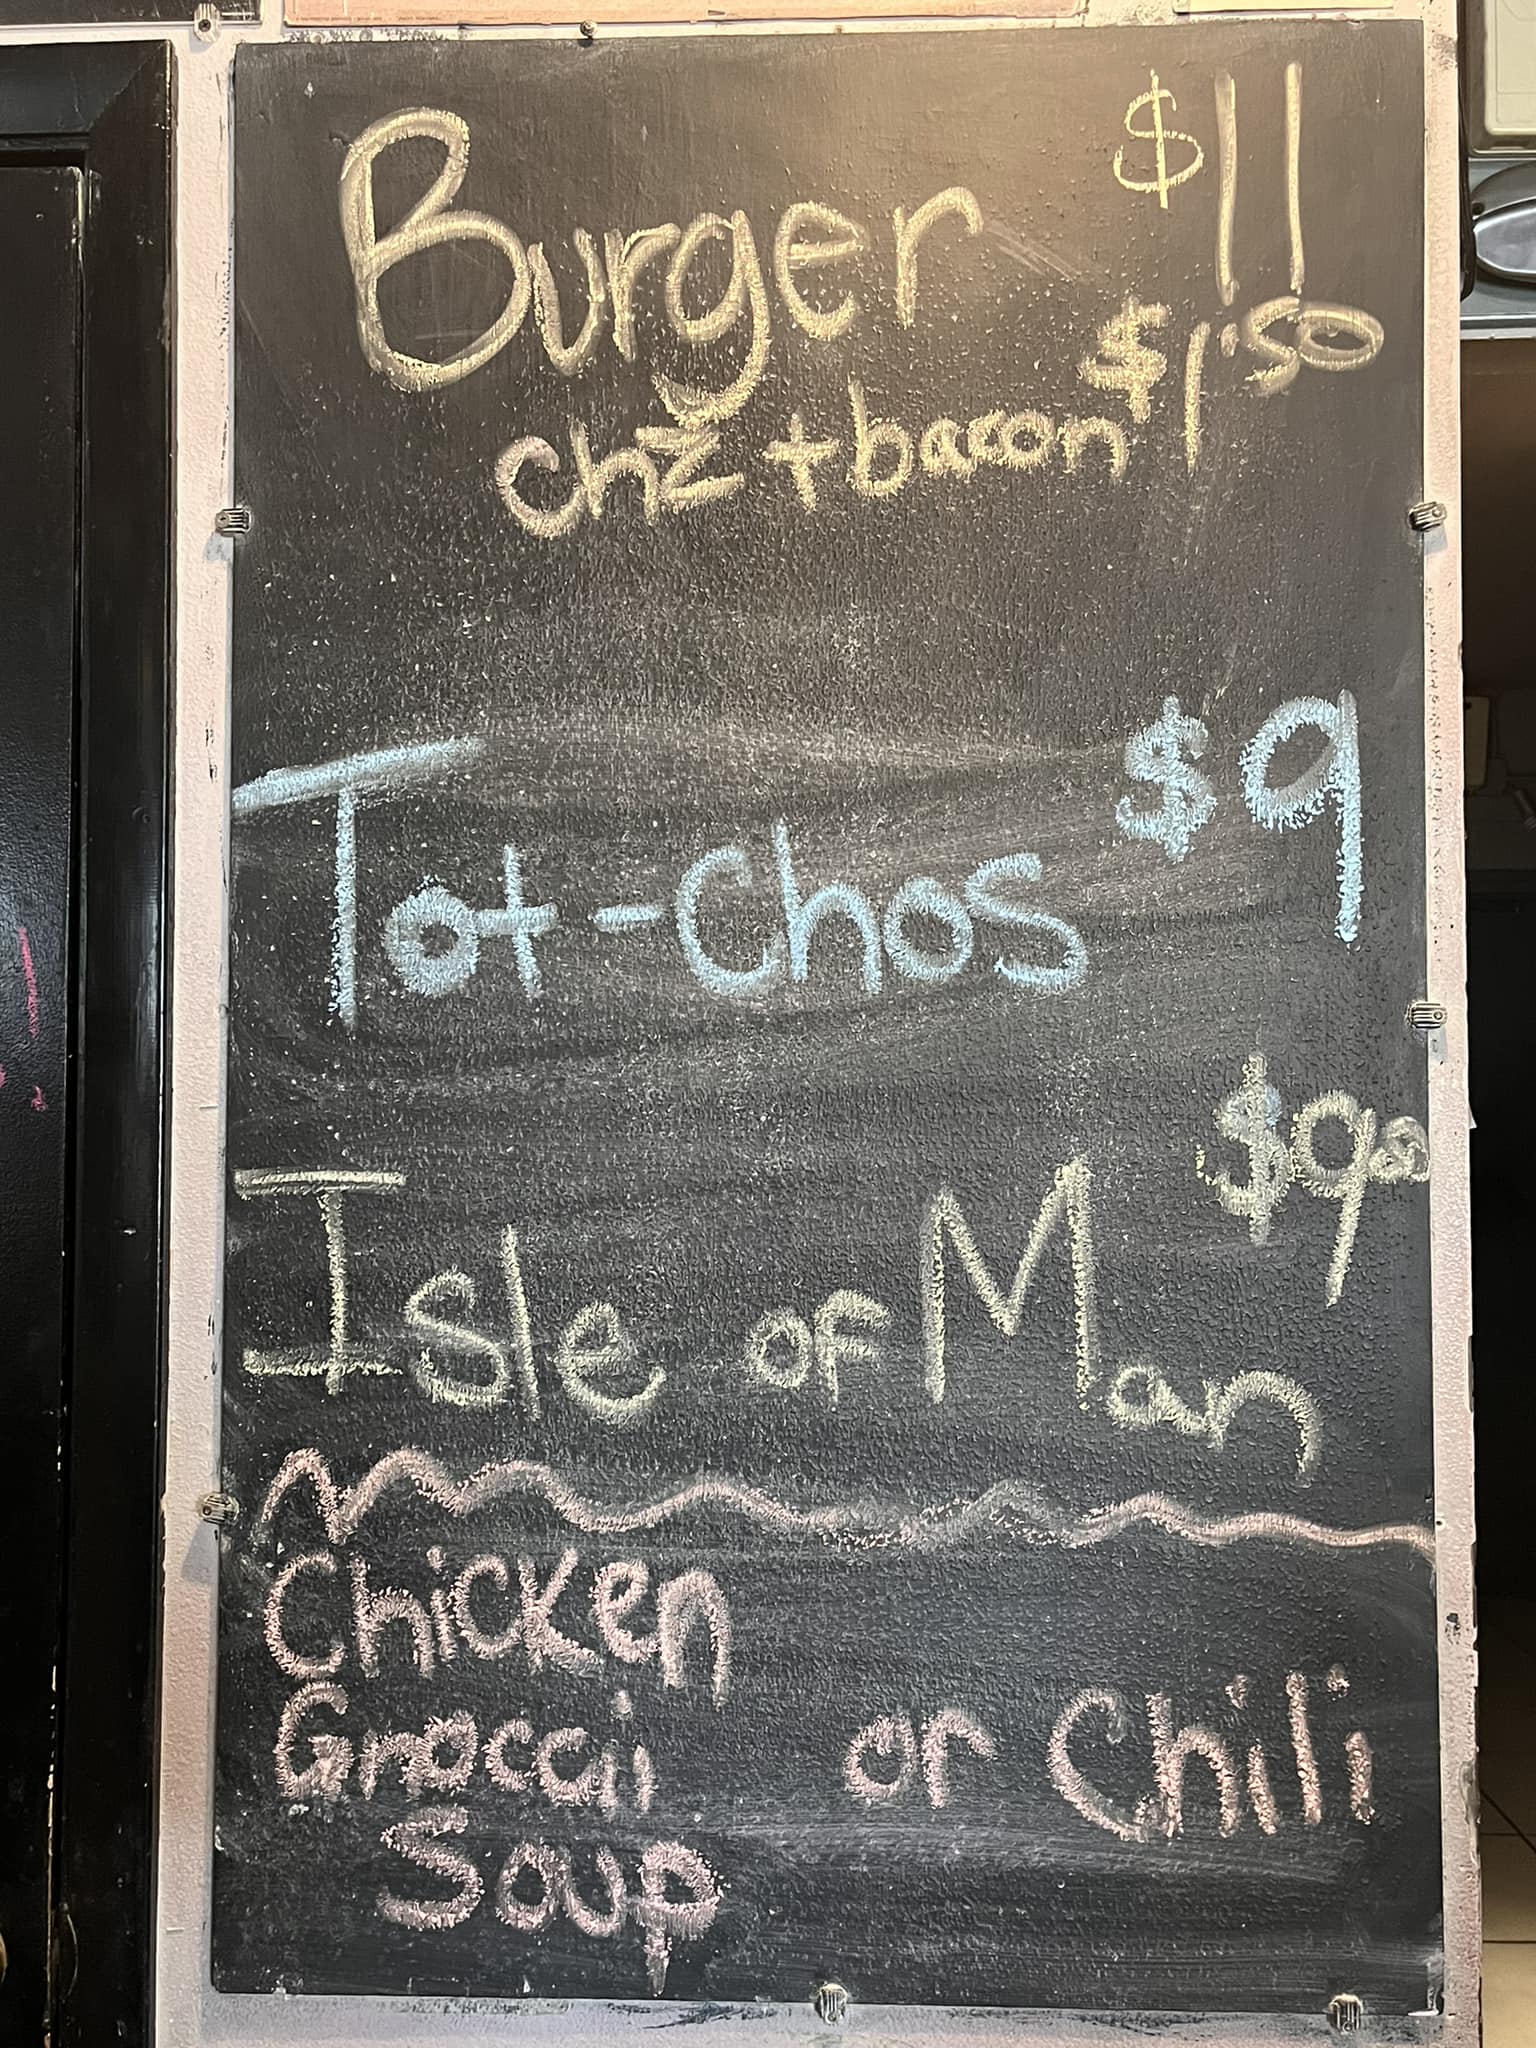 Burger $11
chz + bacon $1.50
Tot-Chos $9
Isle of Man $9
Chicken
Gnoccii or Chili
Soup